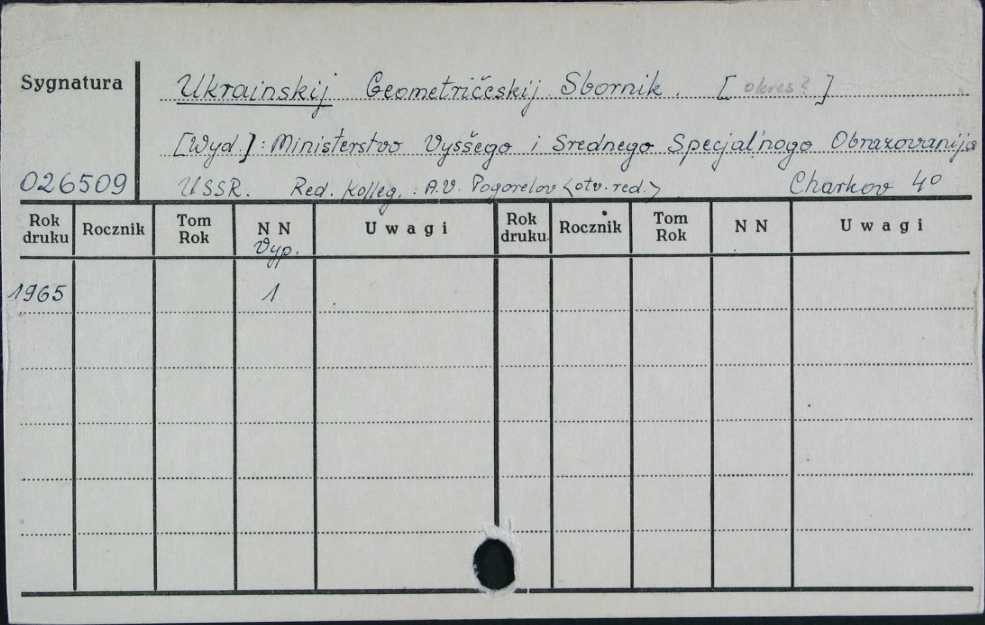 Sygnatura
Ukrainskij Geometričeskij Sbornik. [okres?]
[Wyd.]: Ministerstvo Vysšego i Srednego Specjal'nogo Obrazovanija
026509 USSR. Red. Kolleg.: A.V. Pogorelov <otv. red.> Charkov 4°
Rok druku Rocznik Tom Rok NN Uwagi Rok druku Rocznik Tom Rok NN Uwagi
Vyp.
1965 1